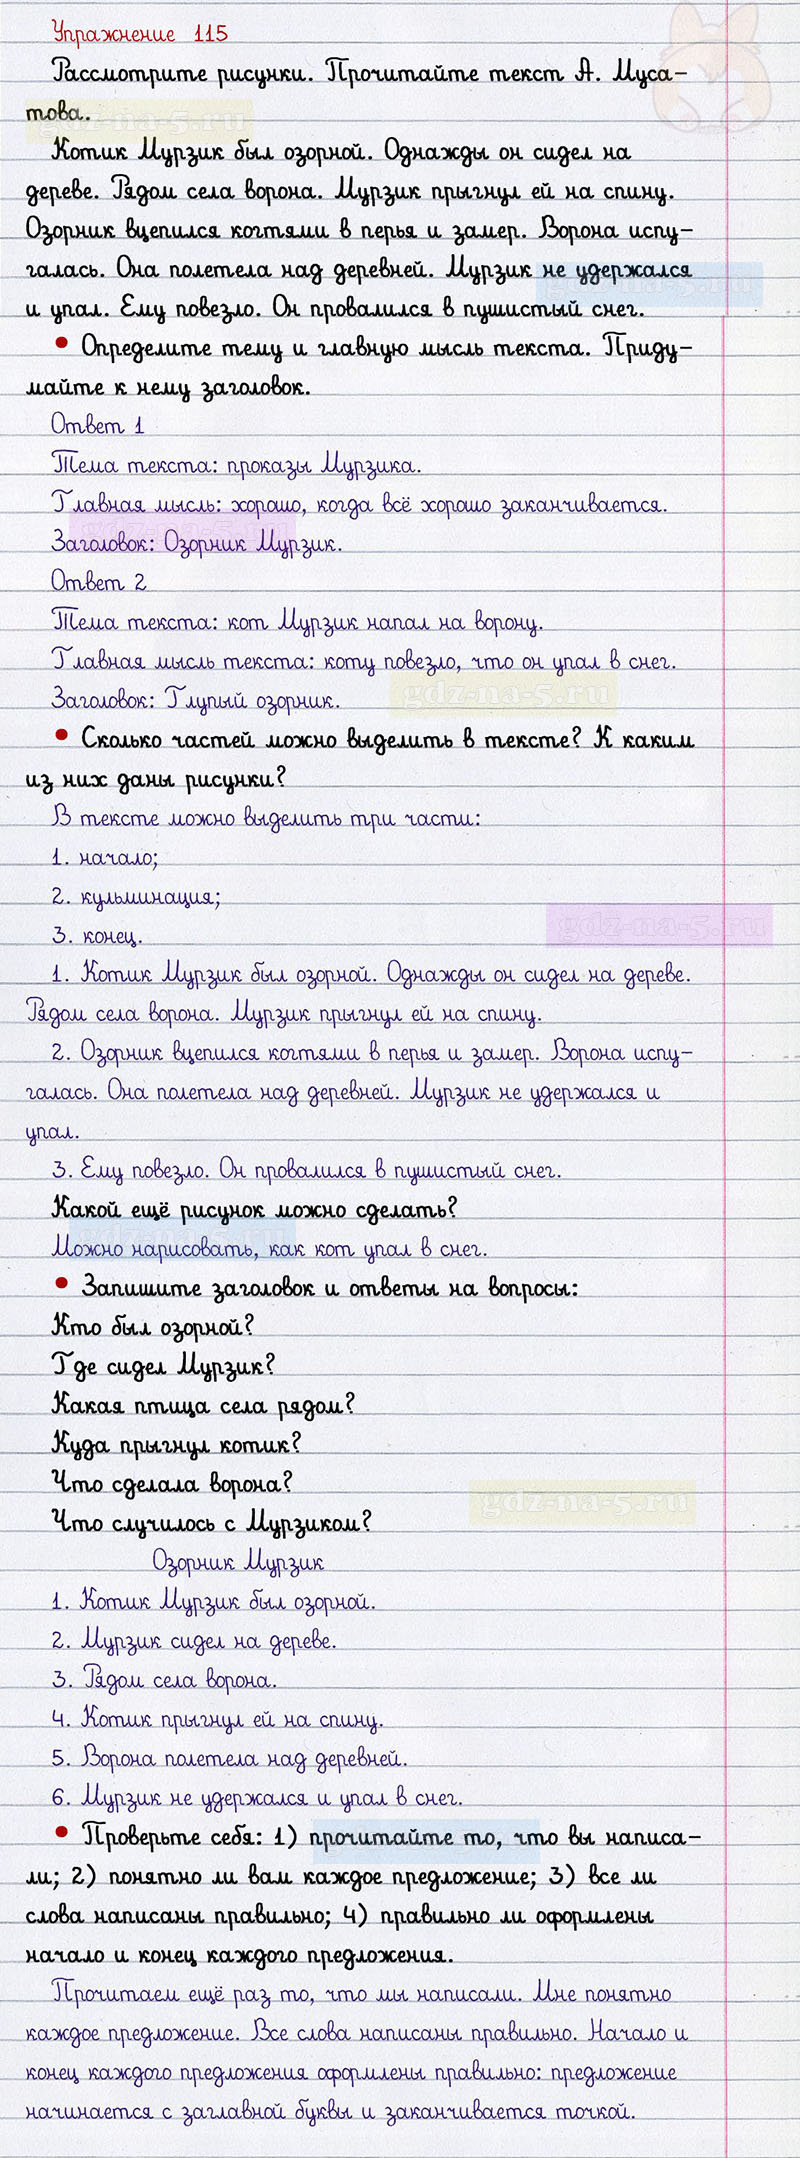 Упражнение 115
Рассмотрите рисунки. Прочитайте текст А. Муса-
това.
gdz-na-5.ru
Котик Мурзик был озорной. Однажды он сидел на
дереве. Рядом села ворона. Мурзик прыгнул ей на спину.
Озорник вцепился когтями в перья и замер. Ворона испу-
галась. Она полетела над деревней. Мурзик не удержался
gdz-na-5.ru
и упал. Ему повезло. Он провалился в пушистый снег.
• Определите тему и главную мысль текста. Приду-
майте к нему заголовок.
Ответ 1
Тема текста: проказы Мурзика.
Главная мысль: хорошо, когда всё хорошо заканчивается.
gdz-na-5.ru
Заголовок: Озорник Мурзик.
Ответ 2
Тема текста: кот Мурзик напал на ворону.
Главная мысль текста: коту повезло, что он упал в снег.
Заголовок: Глупый озорник.
gdz-na-5.ru
• Сколько частей можно выделить в тексте? К каким
из них даны рисунки?
В тексте можно выделить три части:
1. начало;
2. кульминация;
3. конец.
gdz-na-5.ru
1. Котик Мурзик был озорной. Однажды он сидел на дереве.
Рядом села ворона. Мурзик прыгнул ей на спину.
2. Озорник вцепился когтями в перья и замер. Ворона испу-
галась. Она полетела над деревней. Мурзик не удержался и
упал.
3. Ему повезло. Он провалился в пушистый снег.
Какой ещё рисунок можно сделать?
gdz-na-5.ru
Можно нарисовать, как кот упал в снег.
• Запишите заголовок и ответы на вопросы:
Кто был озорной?
Где сидел Мурзик?
Какая птица села рядом?
Куда прыгнул котик?
Что сделала ворона?
gdz-na-5.ru
Что случилось с Мурзиком?
Озорник Мурзик
1. Котик Мурзик был озорной.
2. Мурзик сидел на дереве.
3. Рядом села ворона.
4. Котик прыгнул ей на спину.
5. Ворона полетела над деревней.
6. Мурзик не удержался и упал в снег.
• Проверьте себя: 1) прочитайте то, что вы написа-
gdz-na-5.ru
ли; 2) понятно ли вам каждое предложение; 3) все ли
слова написаны правильно; 4) правильно ли оформлены
начало и конец каждого предложения.
Прочитаем ещё раз то, что мы написали. Мне понятно
каждое предложение. Все слова написаны правильно. Начало и
конец каждого предложения оформлены правильно: предложение
начинается с заглавной буквы и заканчивается точкой.